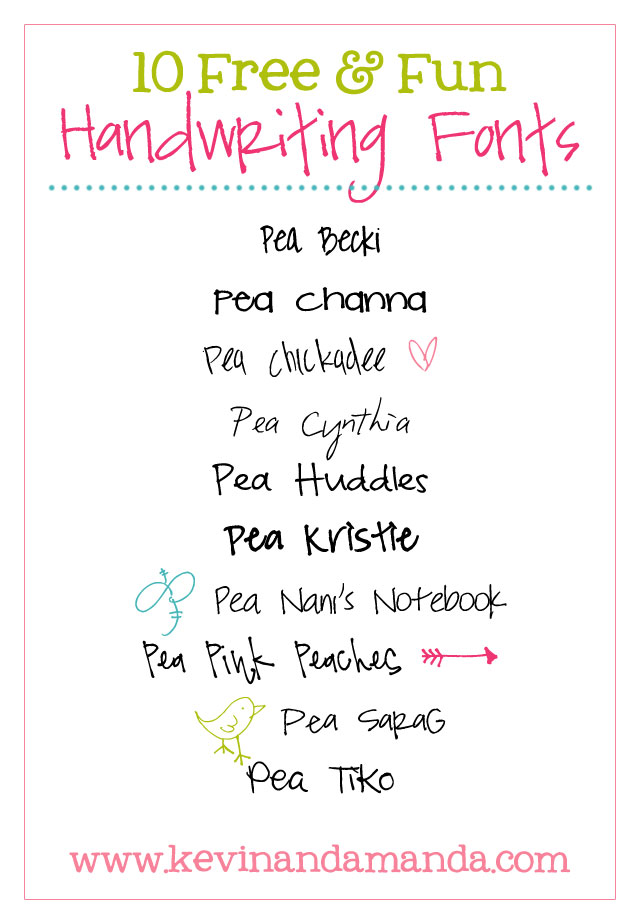 10 Free & Fun
Handwriting Fonts
Pea Becki
Pea Channa
Pea Chickadee
Pea Cynthia
Pea Huddles
Pea Kristie
Pea Nani's Notebook
Pea Pink Peaches
Pea SaraG
Pea Tiko
www.kevinandamanda.com